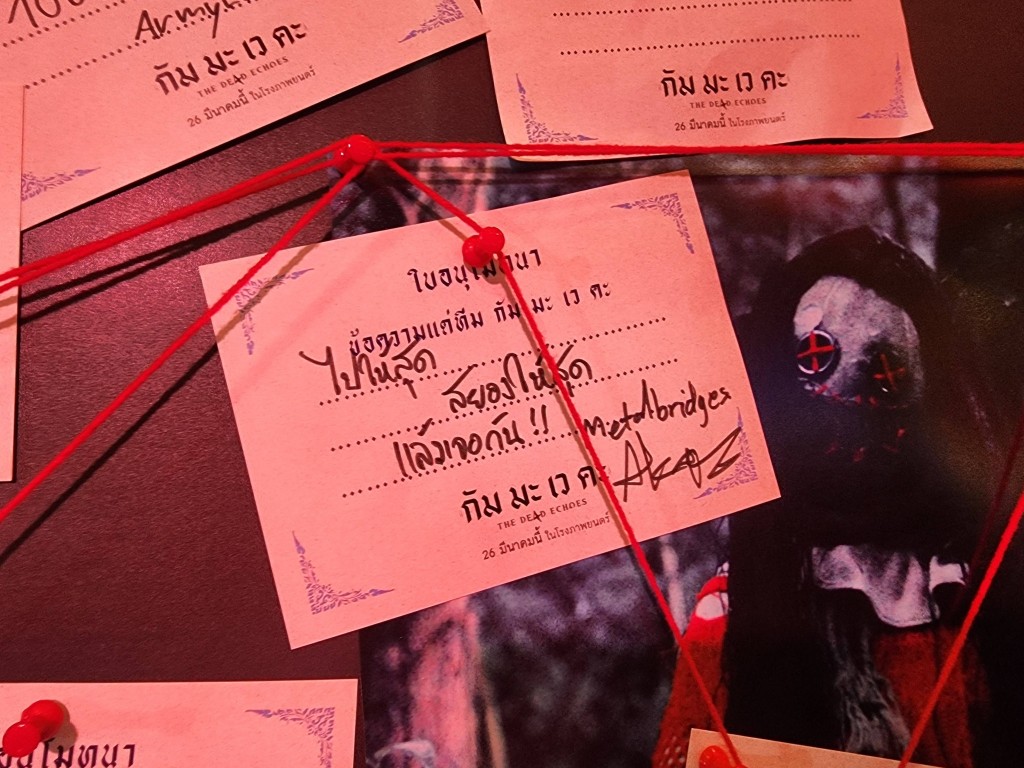 กัม มะ เว คะ
THE DEAD ECHOES
26 มีนาคมนี้ ในโรงภาพยนตร์
กัม มะ เว คะ
THE DEAD ECHOES
26 มีนาคมนี้ ในโรงภาพยนตร์
ใบอนุโมทนา
ข้อความแด่ทีม กัม มะ เว คะ
ไปให้สุด
สยองให้สุด
แล้วเจอกัน !! metalbridges
กัม มะ เว คะ
THE DEAD ECHOES
26 มีนาคมนี้ ในโรงภาพยนตร์
อนุโมทนา